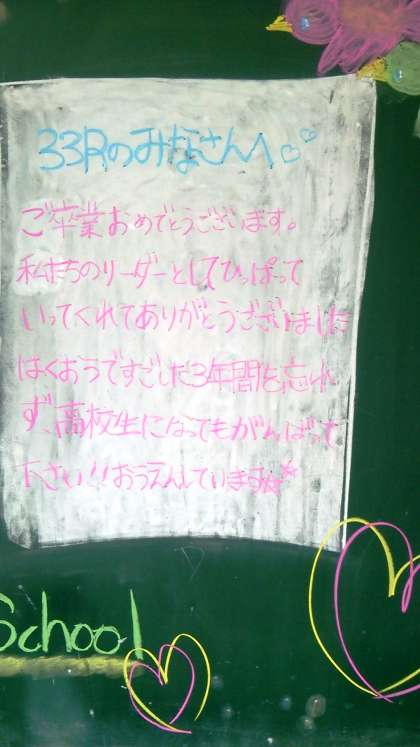 33Rのみなさんへ♡♡
ご卒業おめでとうございます。
私たちのリーダーとしてひっぱって
いってくれてありがとうございました
はくおうですごした3年間を忘れ
ず、高校生になってもがんばって
下さい!!おうえんしています☆☆
School